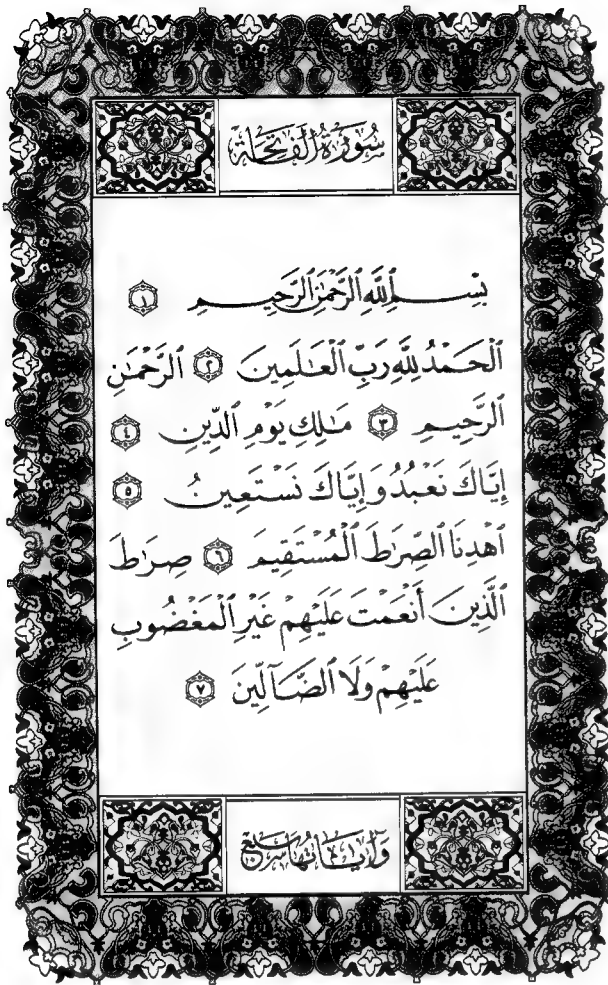 سُورَةُ ٱلْفَاتِحَة
بِسْمِ ٱللَّهِ ٱلرَّحْمَٰنِ ٱلرَّحِيمِ ١
ٱلْحَمْدُ لِلَّهِ رَبِّ ٱلْعَٰلَمِينَ ٢ ٱلرَّحْمَٰنِ
ٱلرَّحِيمِ ٣ مَٰلِكِ يَوْمِ ٱلدِّينِ ٤
إِيَّاكَ نَعْبُدُ وَإِيَّاكَ نَسْتَعِينُ ٥
ٱهْدِنَا ٱلصِّرَٰطَ ٱلْمُسْتَقِيمَ ٦ صِرَٰطَ
ٱلَّذِينَ أَنْعَمْتَ عَلَيْهِمْ غَيْرِ ٱلْمَغْضُوبِ
عَلَيْهِمْ وَلَا ٱلضَّآلِّينَ ٧
وَآيَاتُهَا سَبْع